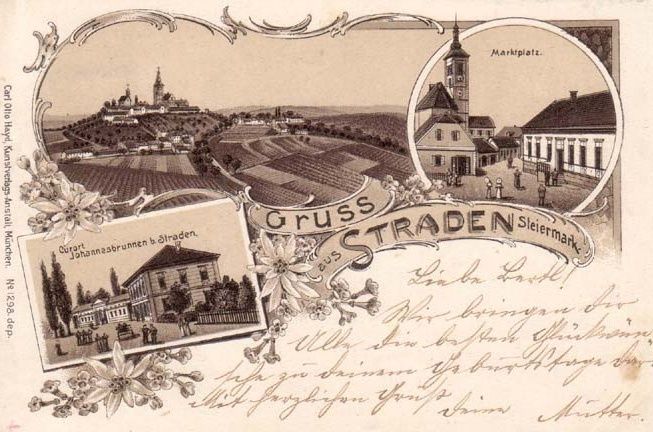 Marktplatz.
Gruss
aus STRADEN
Steiermark.
Curort
Johannesbrunnen b. Straden.
Carl Otto Hayd, Kunstverlags-Anstalt, München. No 1298. dep.
Liebe Bertl!
Wir bringen dir
Alle die besten Glückwün
sche zu deinem Geburtstage dar
Mit herzlichen Gruß
deine Mutter.